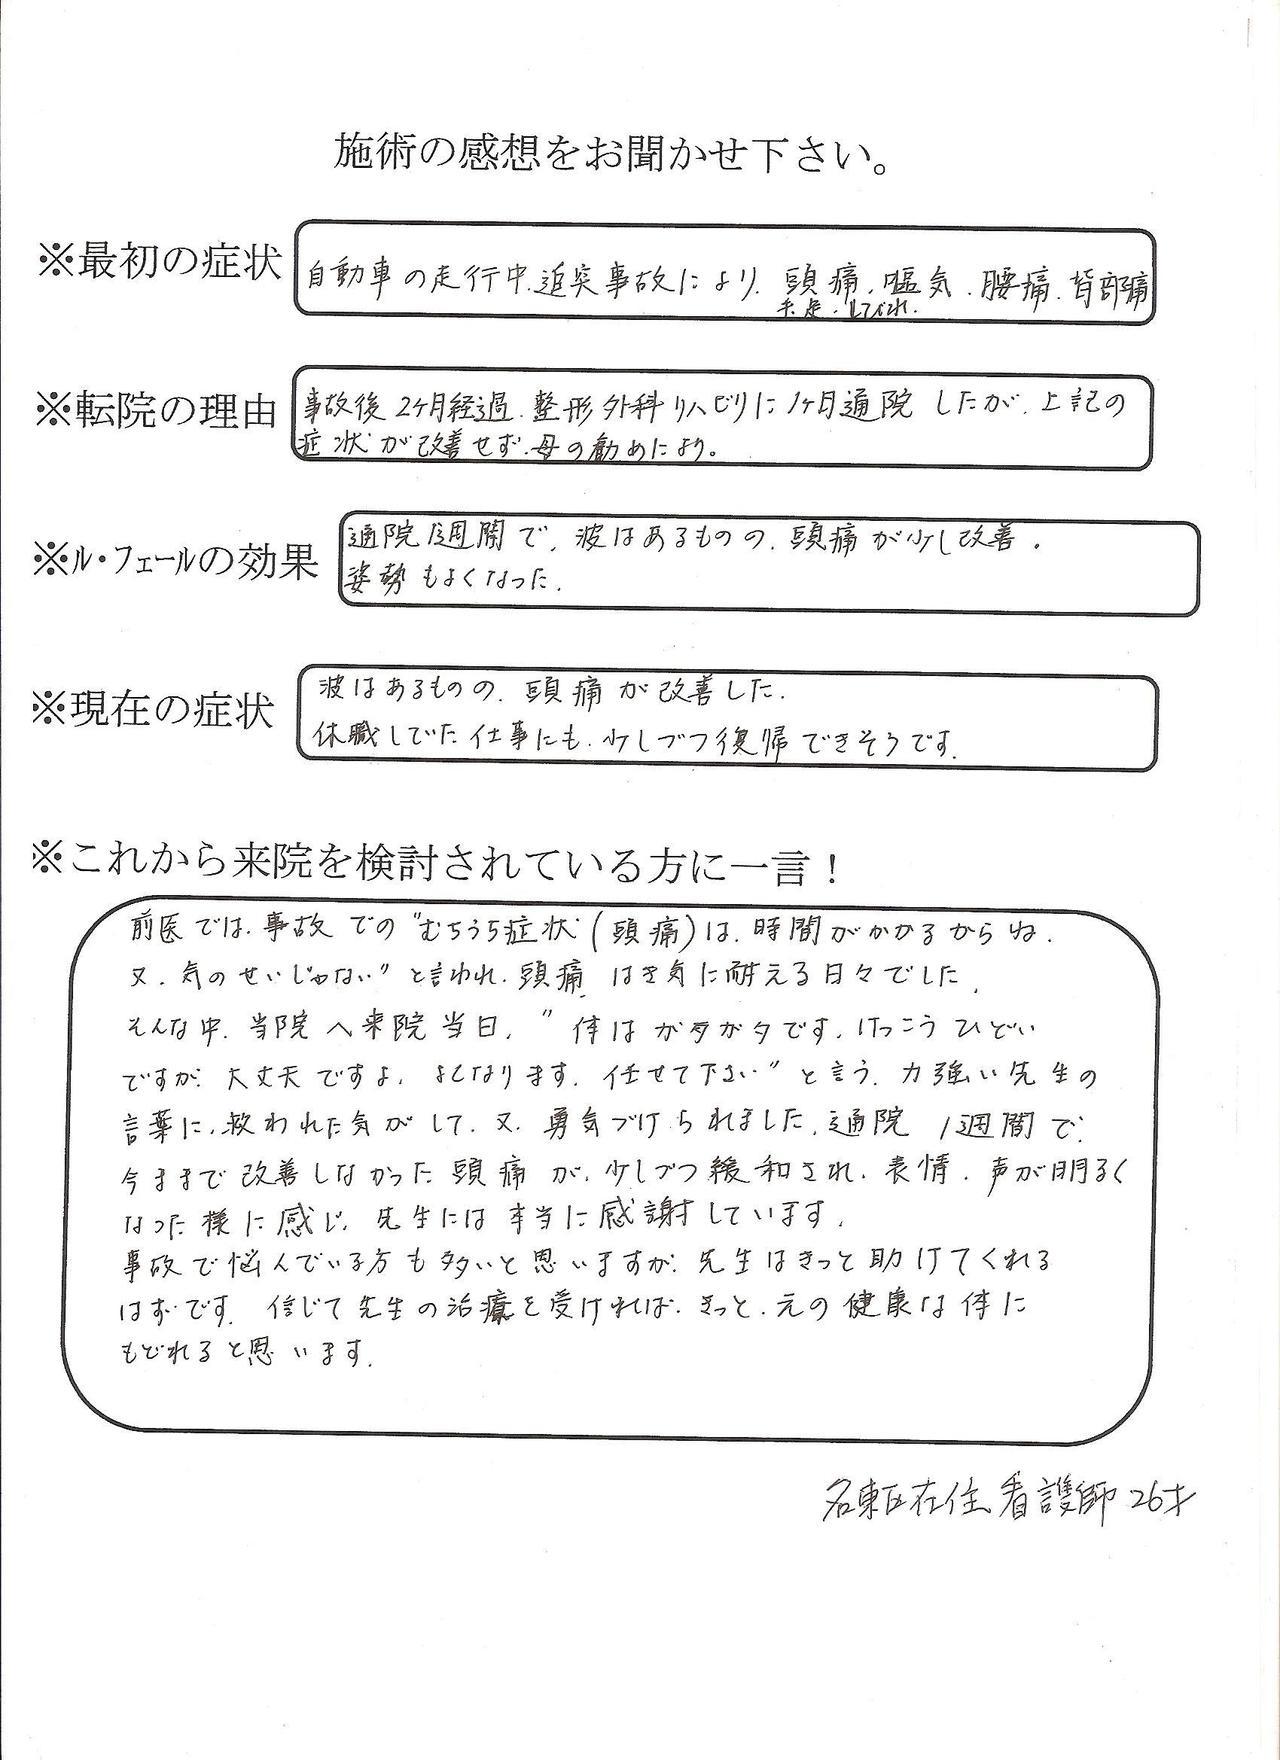 施術の感想をお聞かせ下さい。
※最初の症状
自動車の走行中、追突事故により、頭痛、嘔気、腰痛、背部痛
しびれ、
※転院の理由
事故後2ヶ月経過、整形外科リハビリに1ヶ月通院したが、上記の
症状が改善せず、母の勧めにより。
※ル・フェールの効果
通院1週間で、波はあるものの、頭痛が少し改善。
姿勢もよくなった。
※現在の症状
波はあるものの、頭痛が改善した。
休職していた仕事にも、少しづつ復帰できそうです。
※これから来院を検討されている方に一言！
前医では、事故での“むちうち症状(頭痛)は、時間がかかるからね、
又、気のせいじゃない”と言われ、頭痛、はき気に耐える日々でした。
そんな中、当院へ来院当日、“体はガタガタです、けっこうひどい
ですが、大丈夫ですよ、よくなります、任せて下さい”と言う、力強い先生の
言葉に、救われた気がして、又、勇気づけられました。通院1週間で、
今まで改善しなかった頭痛が、少しづつ緩和され、表情、声が明るく
なった様に感じ、先生には本当に感謝しています。
事故で悩んでいる方も多いと思いますが、先生はきっと助けてくれる
はずです。信じて先生の治療を受ければ、きっと、元の健康な体に
もどれると思います。
名東区在住 看護師 26才